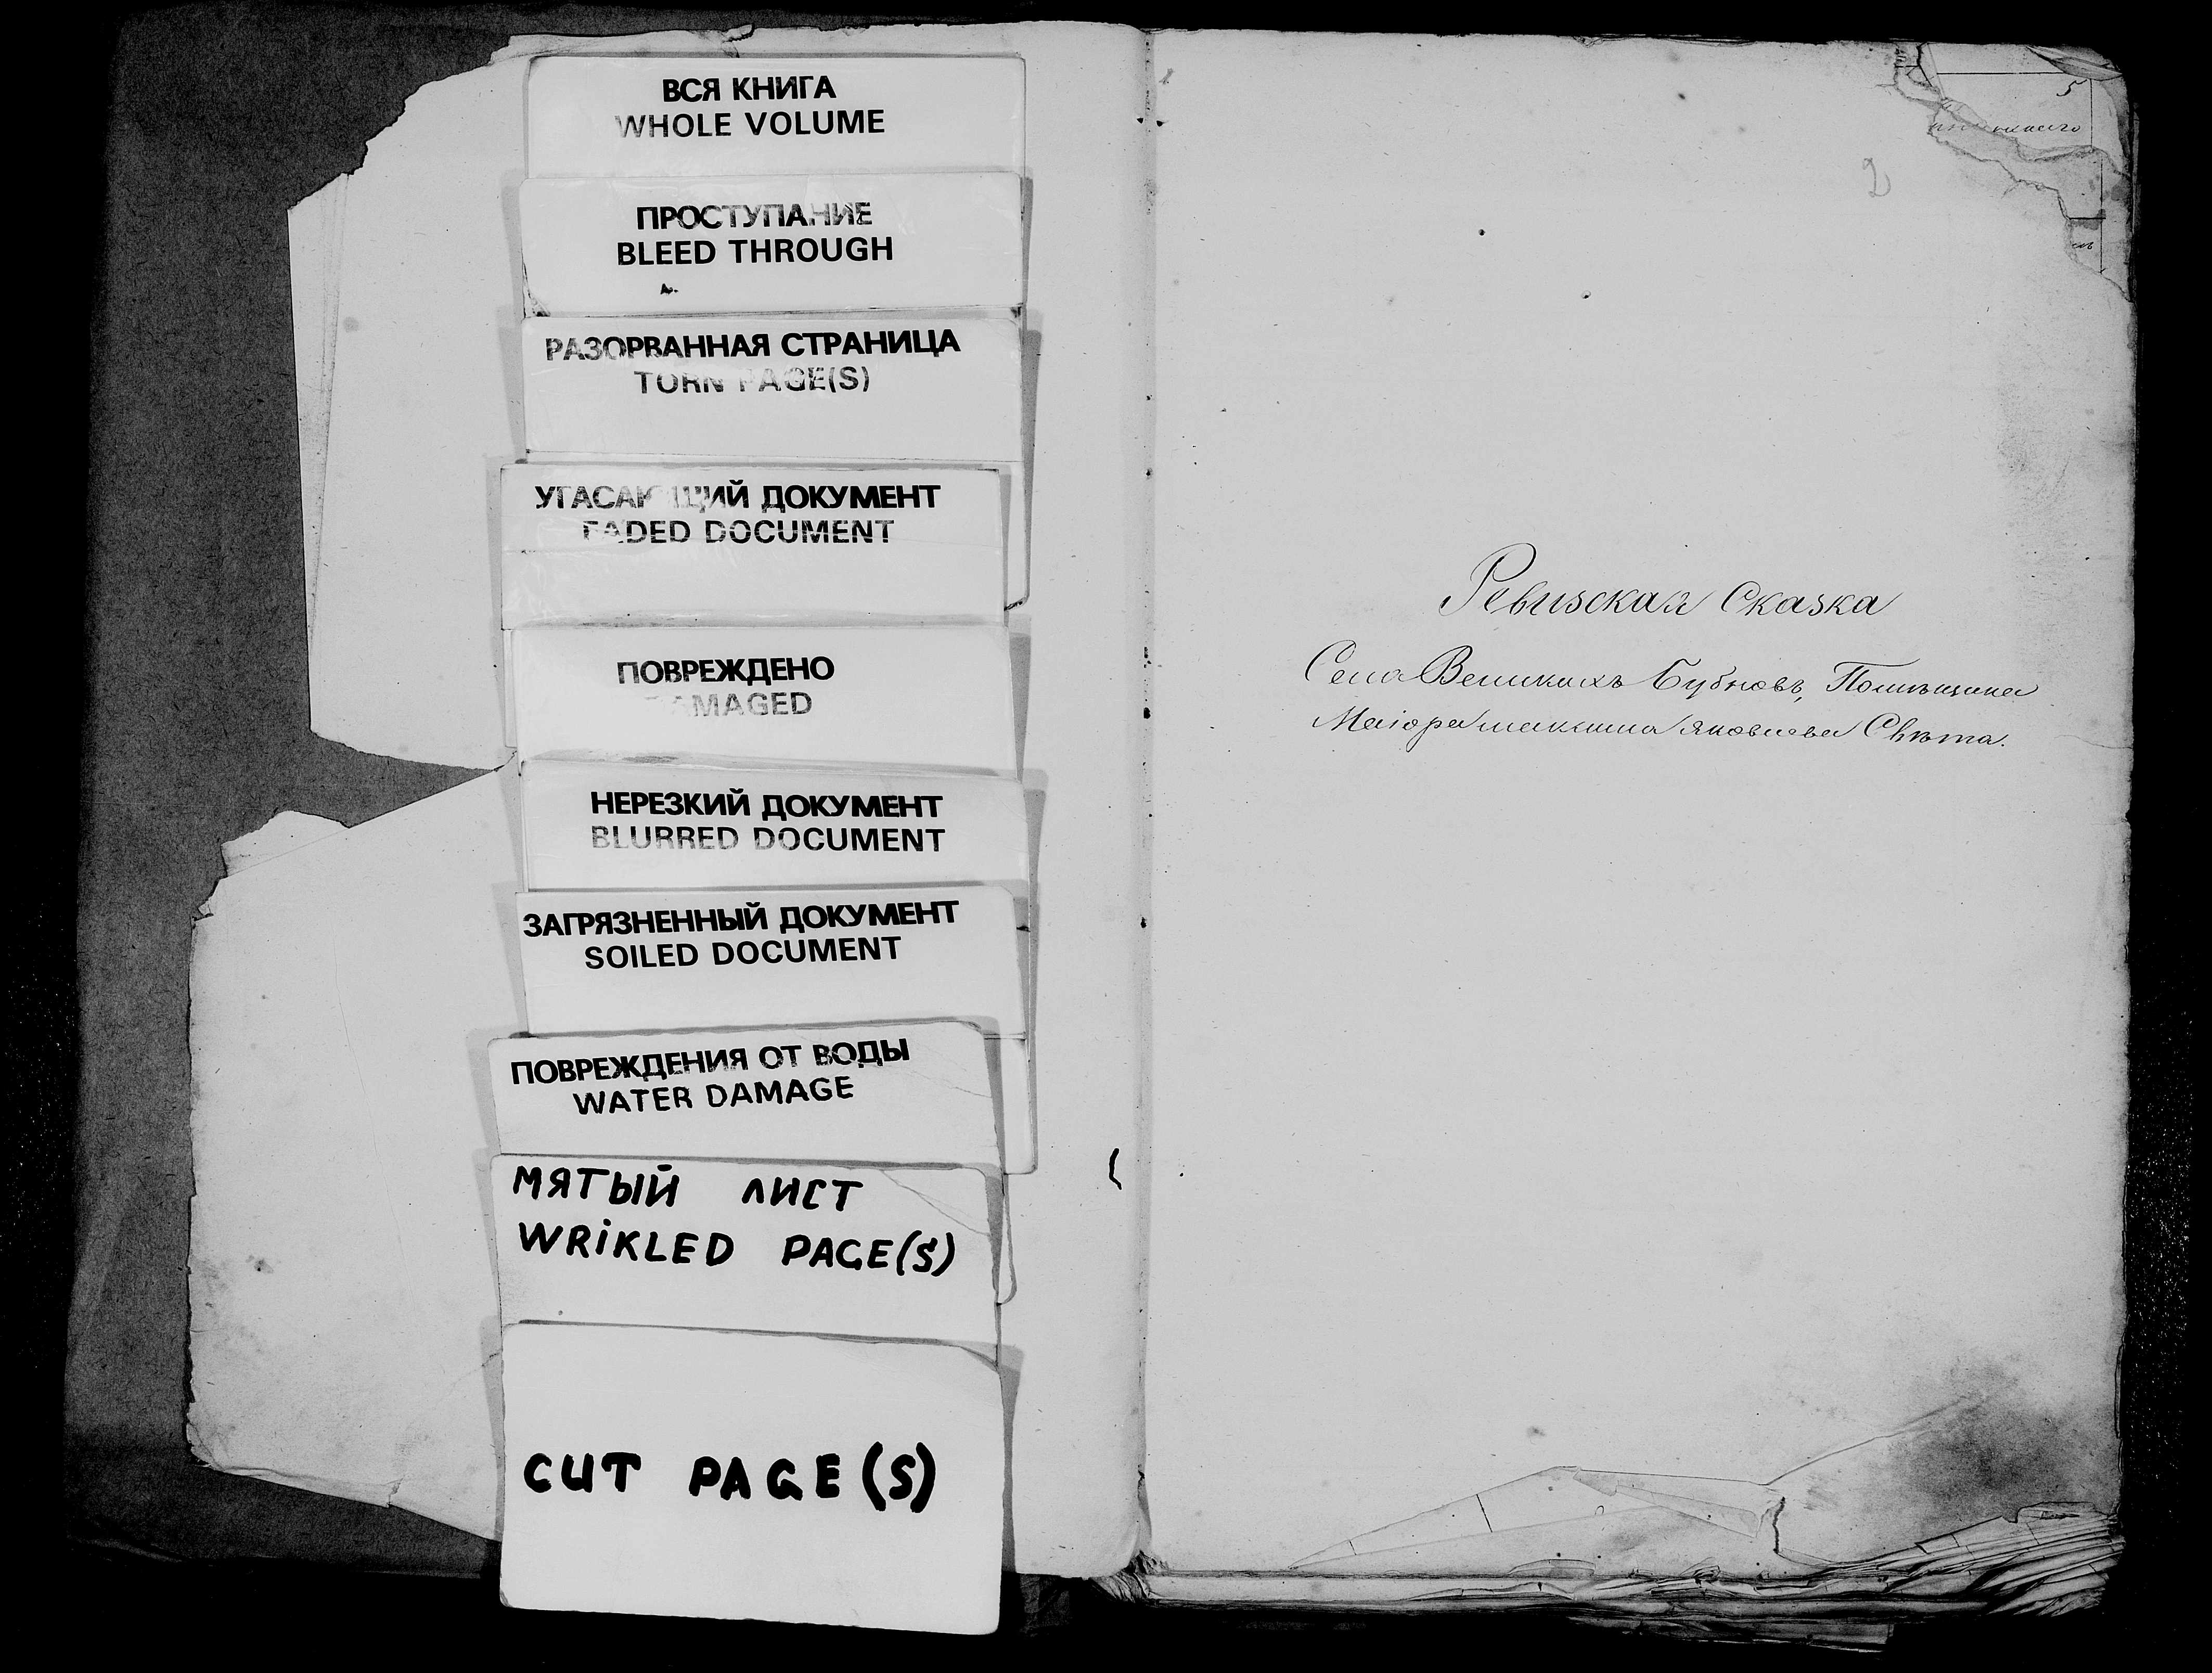 ВСЯ КНИГА
WHOLE VOLUME
ПРОСТУПАНИЕ
BLEED THROUGH
РАЗОРВАННАЯ СТРАНИЦА
TORN PAGE(S)
УГАСАЮЩИЙ ДОКУМЕНТ
FADED DOCUMENT
ПОВРЕЖДЕНО
DAMAGED
НЕРЕЗКИЙ ДОКУМЕНТ
BLURRED DOCUMENT
ЗАГРЯЗНЕННЫЙ ДОКУМЕНТ
SOILED DOCUMENT
ПОВРЕЖДЕНИЯ ОТ ВОДЫ
WATER DAMAGE
МЯТЫЙ ЛИСТ
WRiKLED PAGE(S)
CUT PAGE(S)
5
2
Ревизская Сказка
Села Великихъ Бубновъ, Помѣщика
Маіора максима яковлева Свѣта.